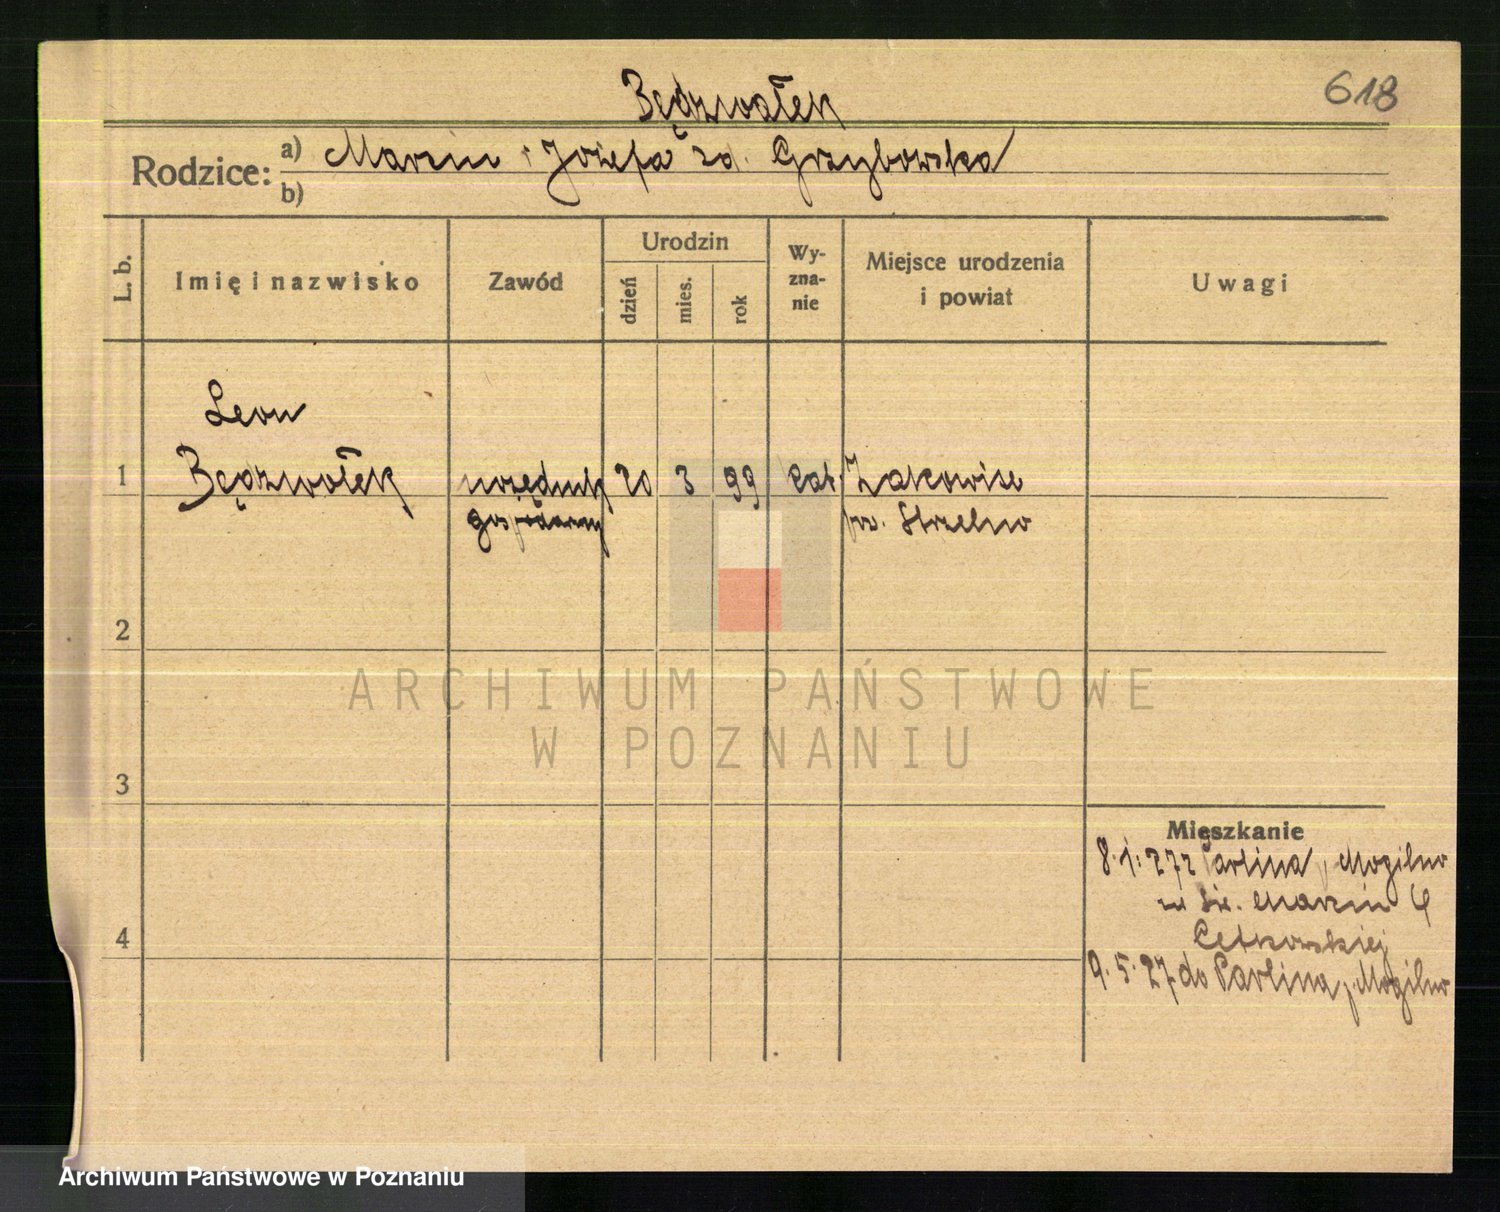 618
Będzwałek
Rodzice: a) Marcin i Józefa zd. Grzybowska
b)
L. b.
Imię i nazwisko
Zawód
Urodzin
dzień
mies.
rok
Wy-
zna-
nie
Miejsce urodzenia
i powiat
Uwagi
Leon
1 Będzwałek urzędnik 20 3 99 kat. Żakowice
gospodarny pow. Strzelno
2
ARCHIWUM PAŃSTWOWE
W POZNANIU
3
Mieszkanie
8.1.27 z Parlina p. Mogilno
Św. Marcin
4 Cetkowskiej
9.5.27 do Parlina p. Mogilno
Archiwum Państwowe w Poznaniu